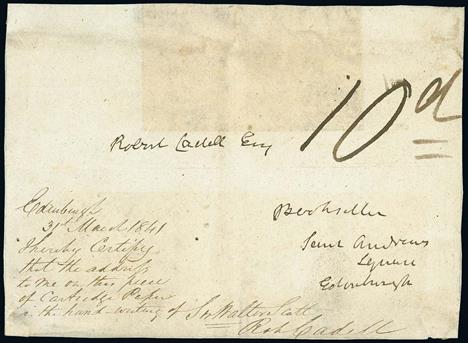 10d
Robert Cadell Esq
Bookseller
Saint Andrews
Square
Edinburgh
Edinburgh
31st March 1841
I hereby Certify
that the address
to me on this piece
of Cartridge Paper
is the hand-writing of Sir Walter Scott
Rob Cadell